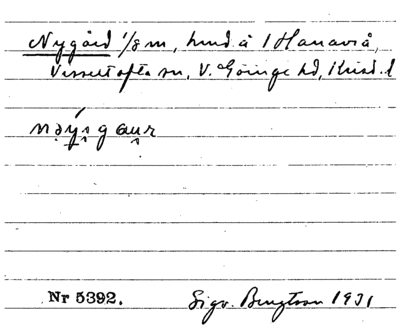 Nygård 1/8 m, hmd å 1 Hanaviå,
Visseltofta sn, V. Göinge hd, Krist. l
nǝýi̯gau̯r
Nr 5392. Sigv. Bengtson 1931